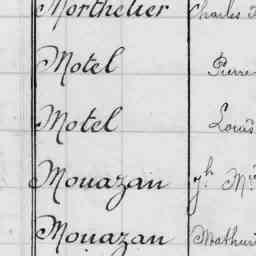 Morthelier Charles
Motel Pierre
Motel Louis
Mouazan Jh Mie
Mouazan Mathuri